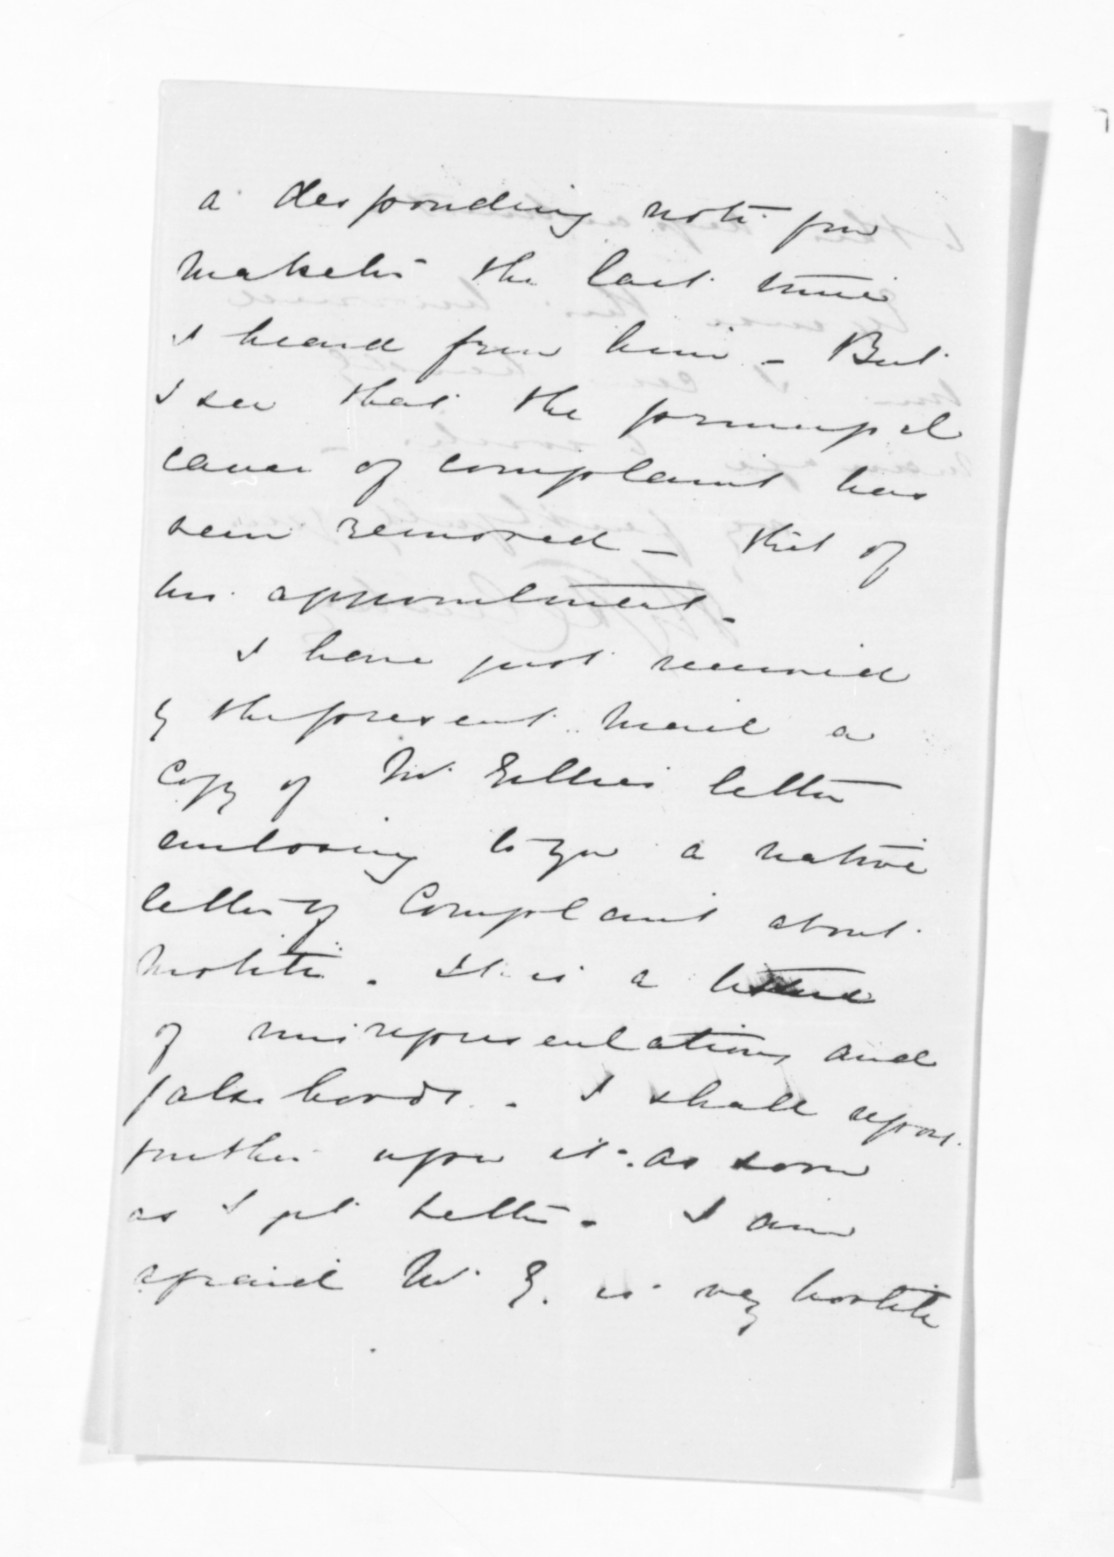 a desponding note from
the last time
I heard from him - But
I see that the principal
cause of complaint has
been removed - that of
his appointment.
I have just received
by the present mail a
Copy of Mr Gillies letter
enclosing to you a native
letter of Complaint about
It is a tissue
of misrepresentations and
falsehoods. I shall report
further upon it as soon
as I get better. I am
afraid Mr G. is very hostile